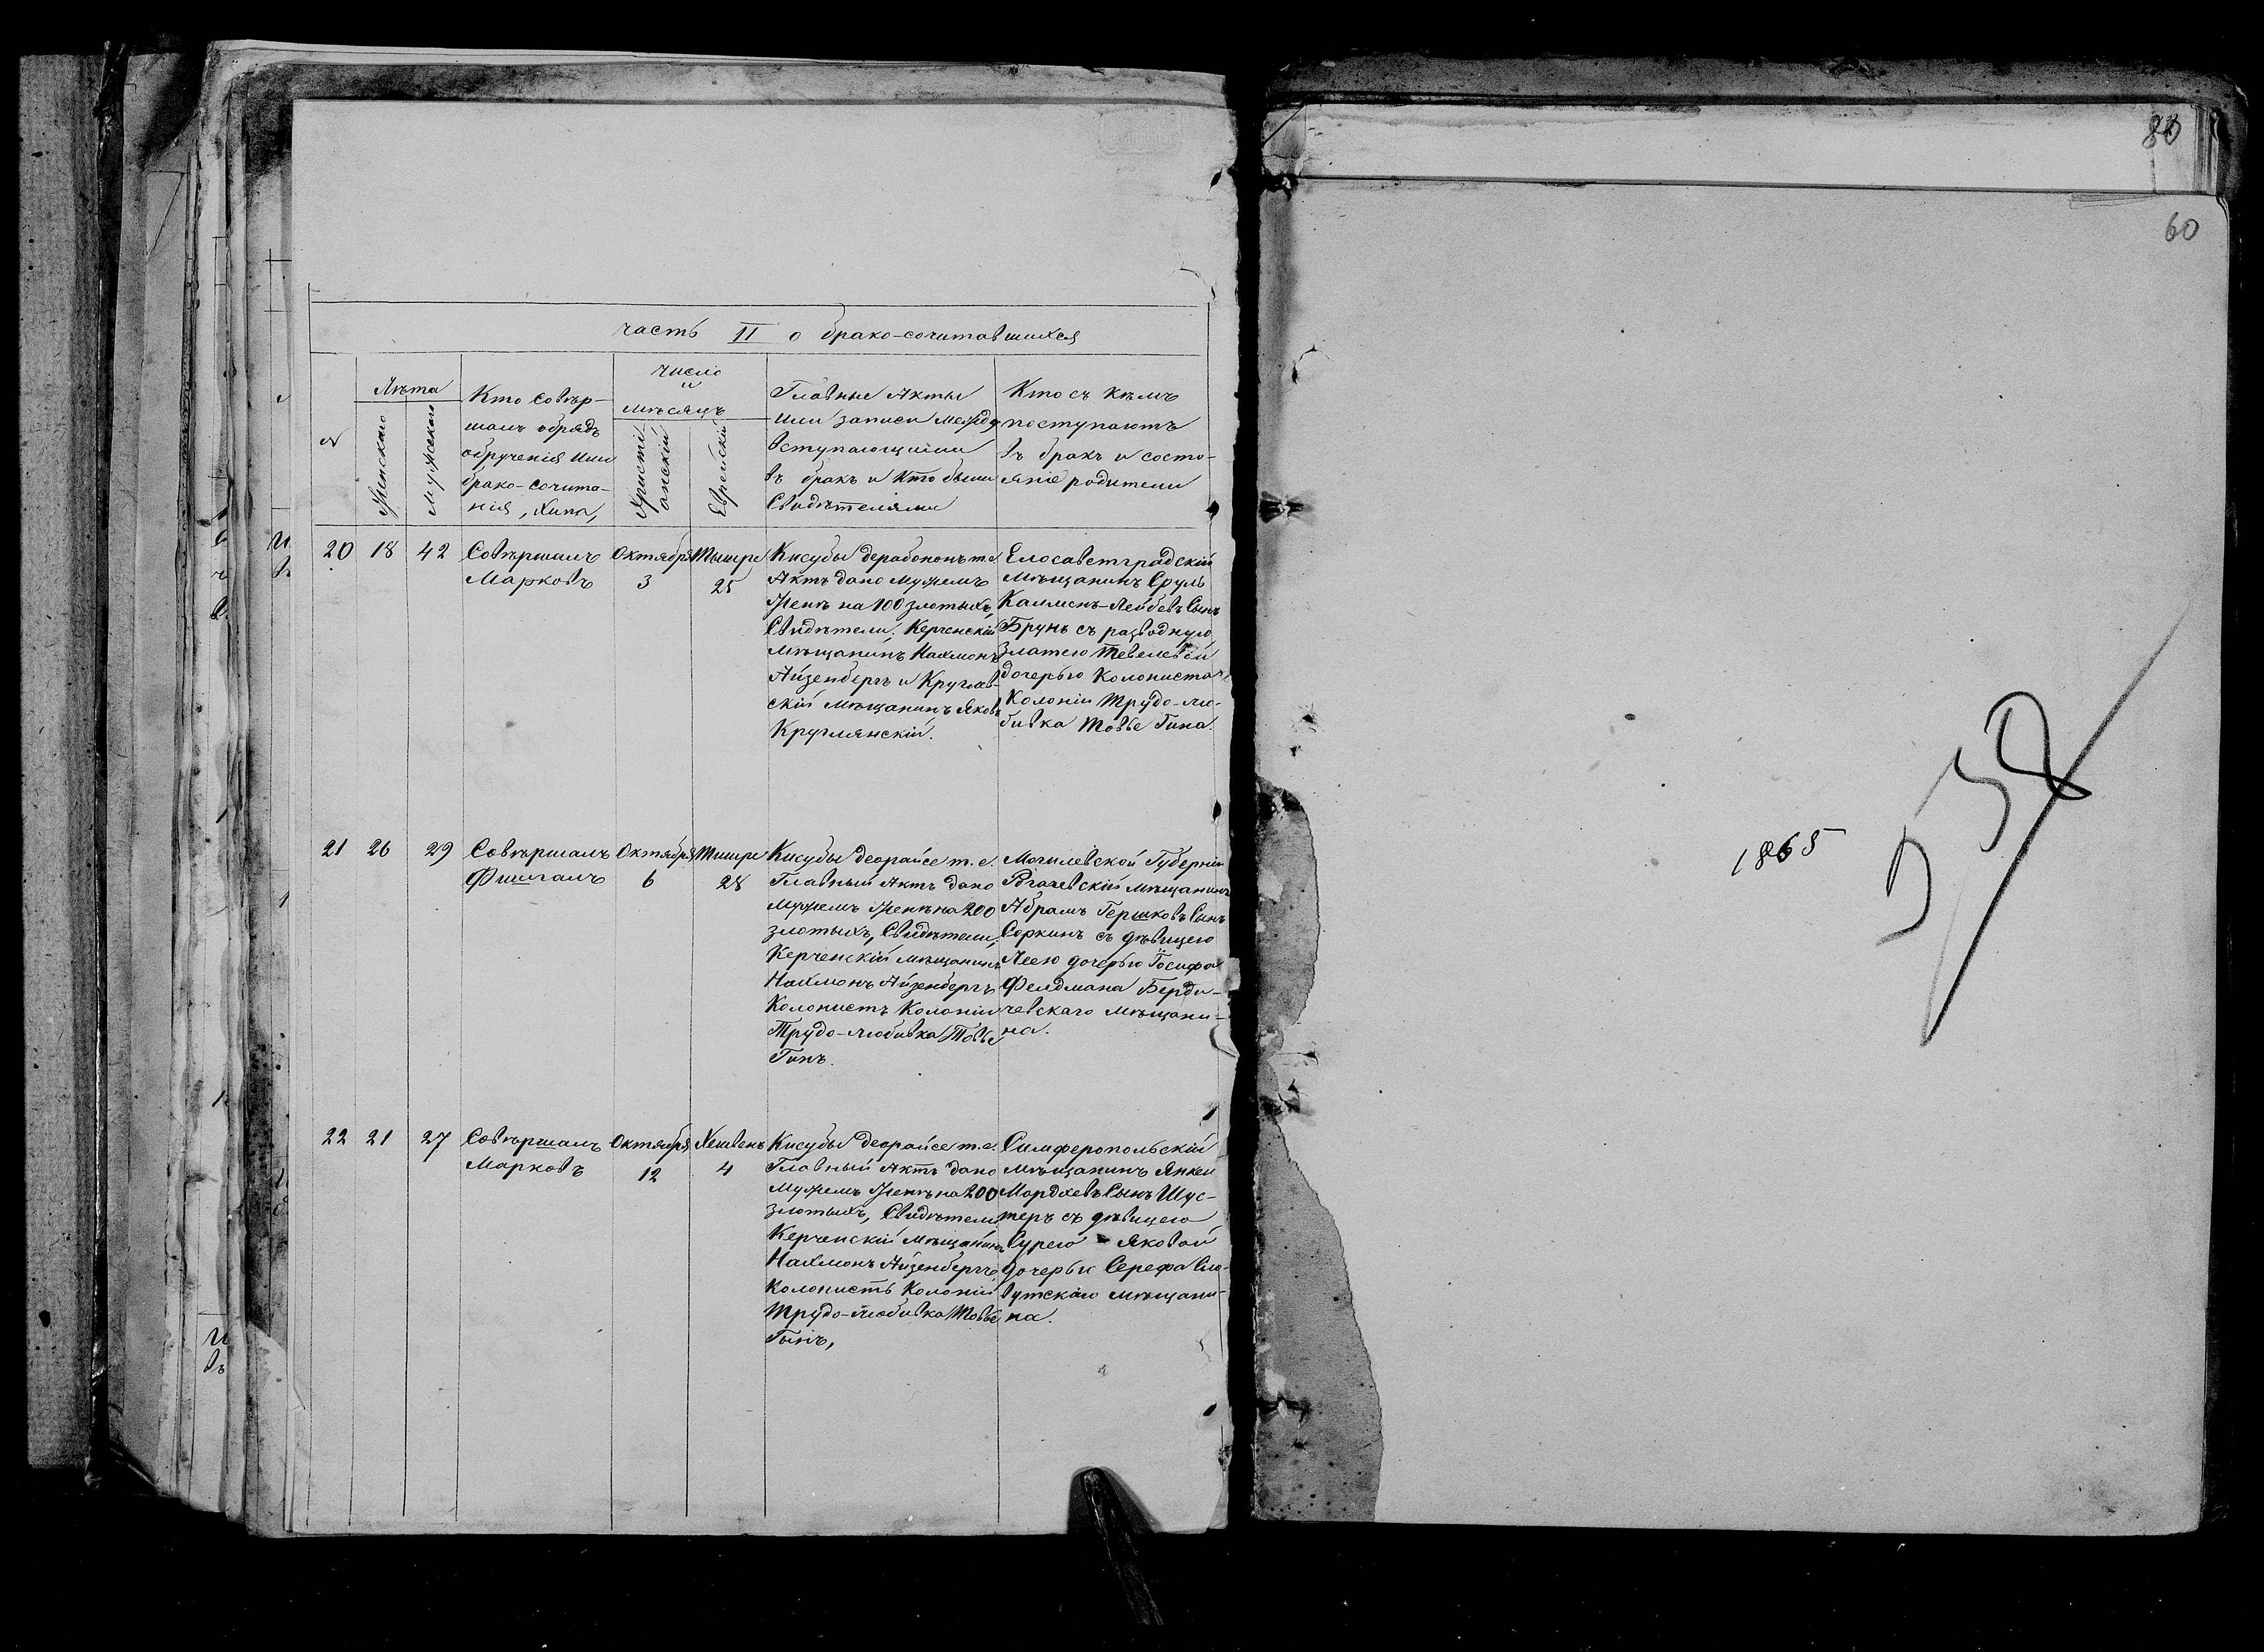 часть II о брако-сочитавшихся
№
Лѣта
Женскаго
Мужескаго
Кто совѣр-
шалъ обрядъ
обрученія или
брако-сочита-
нія, Хипа,
число
и
мѣсяцъ
Христі
анскій
Еврейскій
Главные Акты
или записи между
вступающими
въ бракъ и кто были
Свидѣтелями
Кто съ кѣмъ
поступаютъ
въ бракъ и состо-
яніе родители
20
18
42
Совѣршалъ
Марковъ
Октября
3
Тышре
25
Кисубы дерабононъ т.е.
Актъ дано мужемъ
Женѣ на 100 злотыхъ,
Свидѣтели: Керченскій
мѣщанинъ Нахмонъ
Айзенбергъ и Круглав-
скій мѣщанинъ Яковъ
Круглянскій.
Елосаветградскій
мѣщанинъ Сруль
Калменъ-Лейбевъ Сынъ
Брунъ съ разводную
Златею Тевелевой
дочерью Колониста
Колоніи Трудо-лю-
бивка Товье Гина.
21
26
29
Совѣршалъ
Фишгалъ
Октября
6
Тишре
28
Кисубы деорайсе т.е.
Главный Актъ дано
Мужемъ Женѣ на 200
злотыхъ, Свидѣтели,
Керченскій мѣщанинъ
Нахмонъ Айзенбергъ
Колонистъ Колоніи
Трудо-любивка Товье
Гинъ.
Могилевской Губерніи
Рогачевскій мѣщанинъ
Абрамъ Гершковъ Сынъ
Соркинъ съ дѣвицею
Леею дочерью Іосифа
Фелдмана Берди-
чевскаго мѣщани-
на.
22
21
27
Совѣршалъ
Марковъ
Октября
12
Хешвенъ
4
Кисубы деорайсе т.е.
Главный Актъ дано
Мужемъ Женѣ на 200
злотыхъ, Свидѣтели
Керченскій мѣщанинъ
Нахмонъ Айзенбергъ
Колонистъ Колоніи
Трудо-любивка Товье
Гынъ,
Симферопольскій
мѣщанинъ Янкел
Мордхевъ Сынъ Шус-
теръ съ дѣвицею
Сурею Яковой
дочерью Серефа Сла-
вутскаго мѣщани-
на.
60
1865